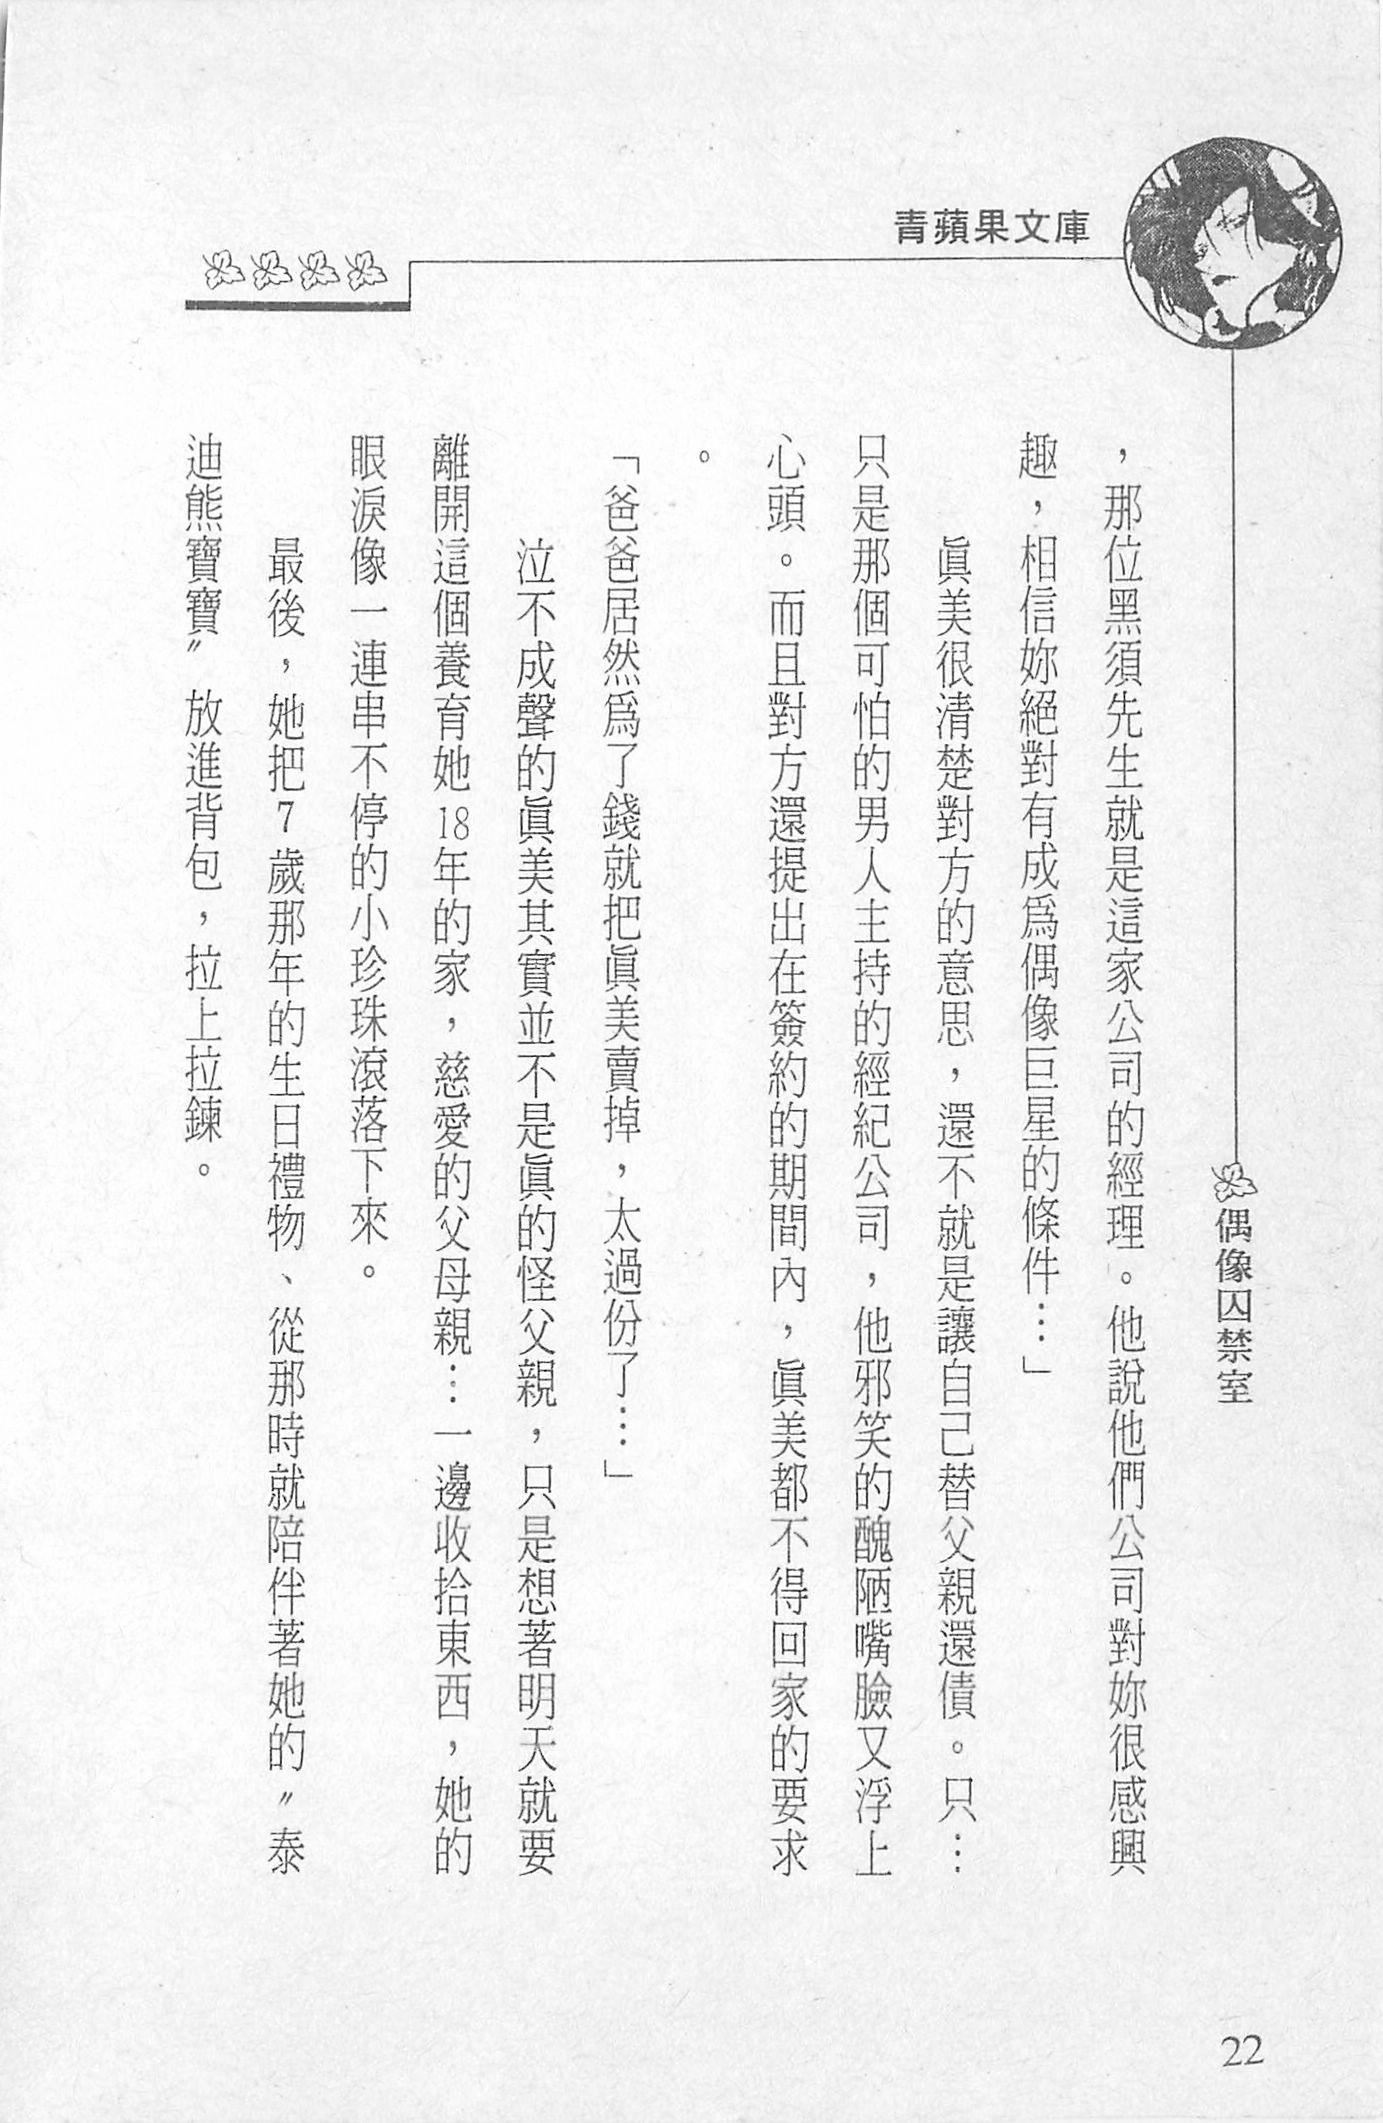 青蘋果文庫
偶像囚禁室
，那位黑須先生就是這家公司的經理。他說他們公司對妳很感興
趣，相信妳絕對有成爲偶像巨星的條件…」
眞美很清楚對方的意思，還不就是讓自己替父親還債。只…
只是那個可怕的男人主持的經紀公司，他邪笑的醜陋嘴臉又浮上
心頭。而且對方還提出在簽約的期間內，眞美都不得回家的要求
。
「爸爸居然爲了錢就把眞美賣掉，太過份了…」
泣不成聲的眞美其實並不是眞的怪父親，只是想著明天就要
離開這個養育她18年的家，慈愛的父母親…一邊收拾東西，她的
眼淚像一連串不停的小珍珠滾落下來。
最後，她把7歲那年的生日禮物、從那時就陪伴著她的〝泰
迪熊寶寶〞放進背包，拉上拉鍊。
22